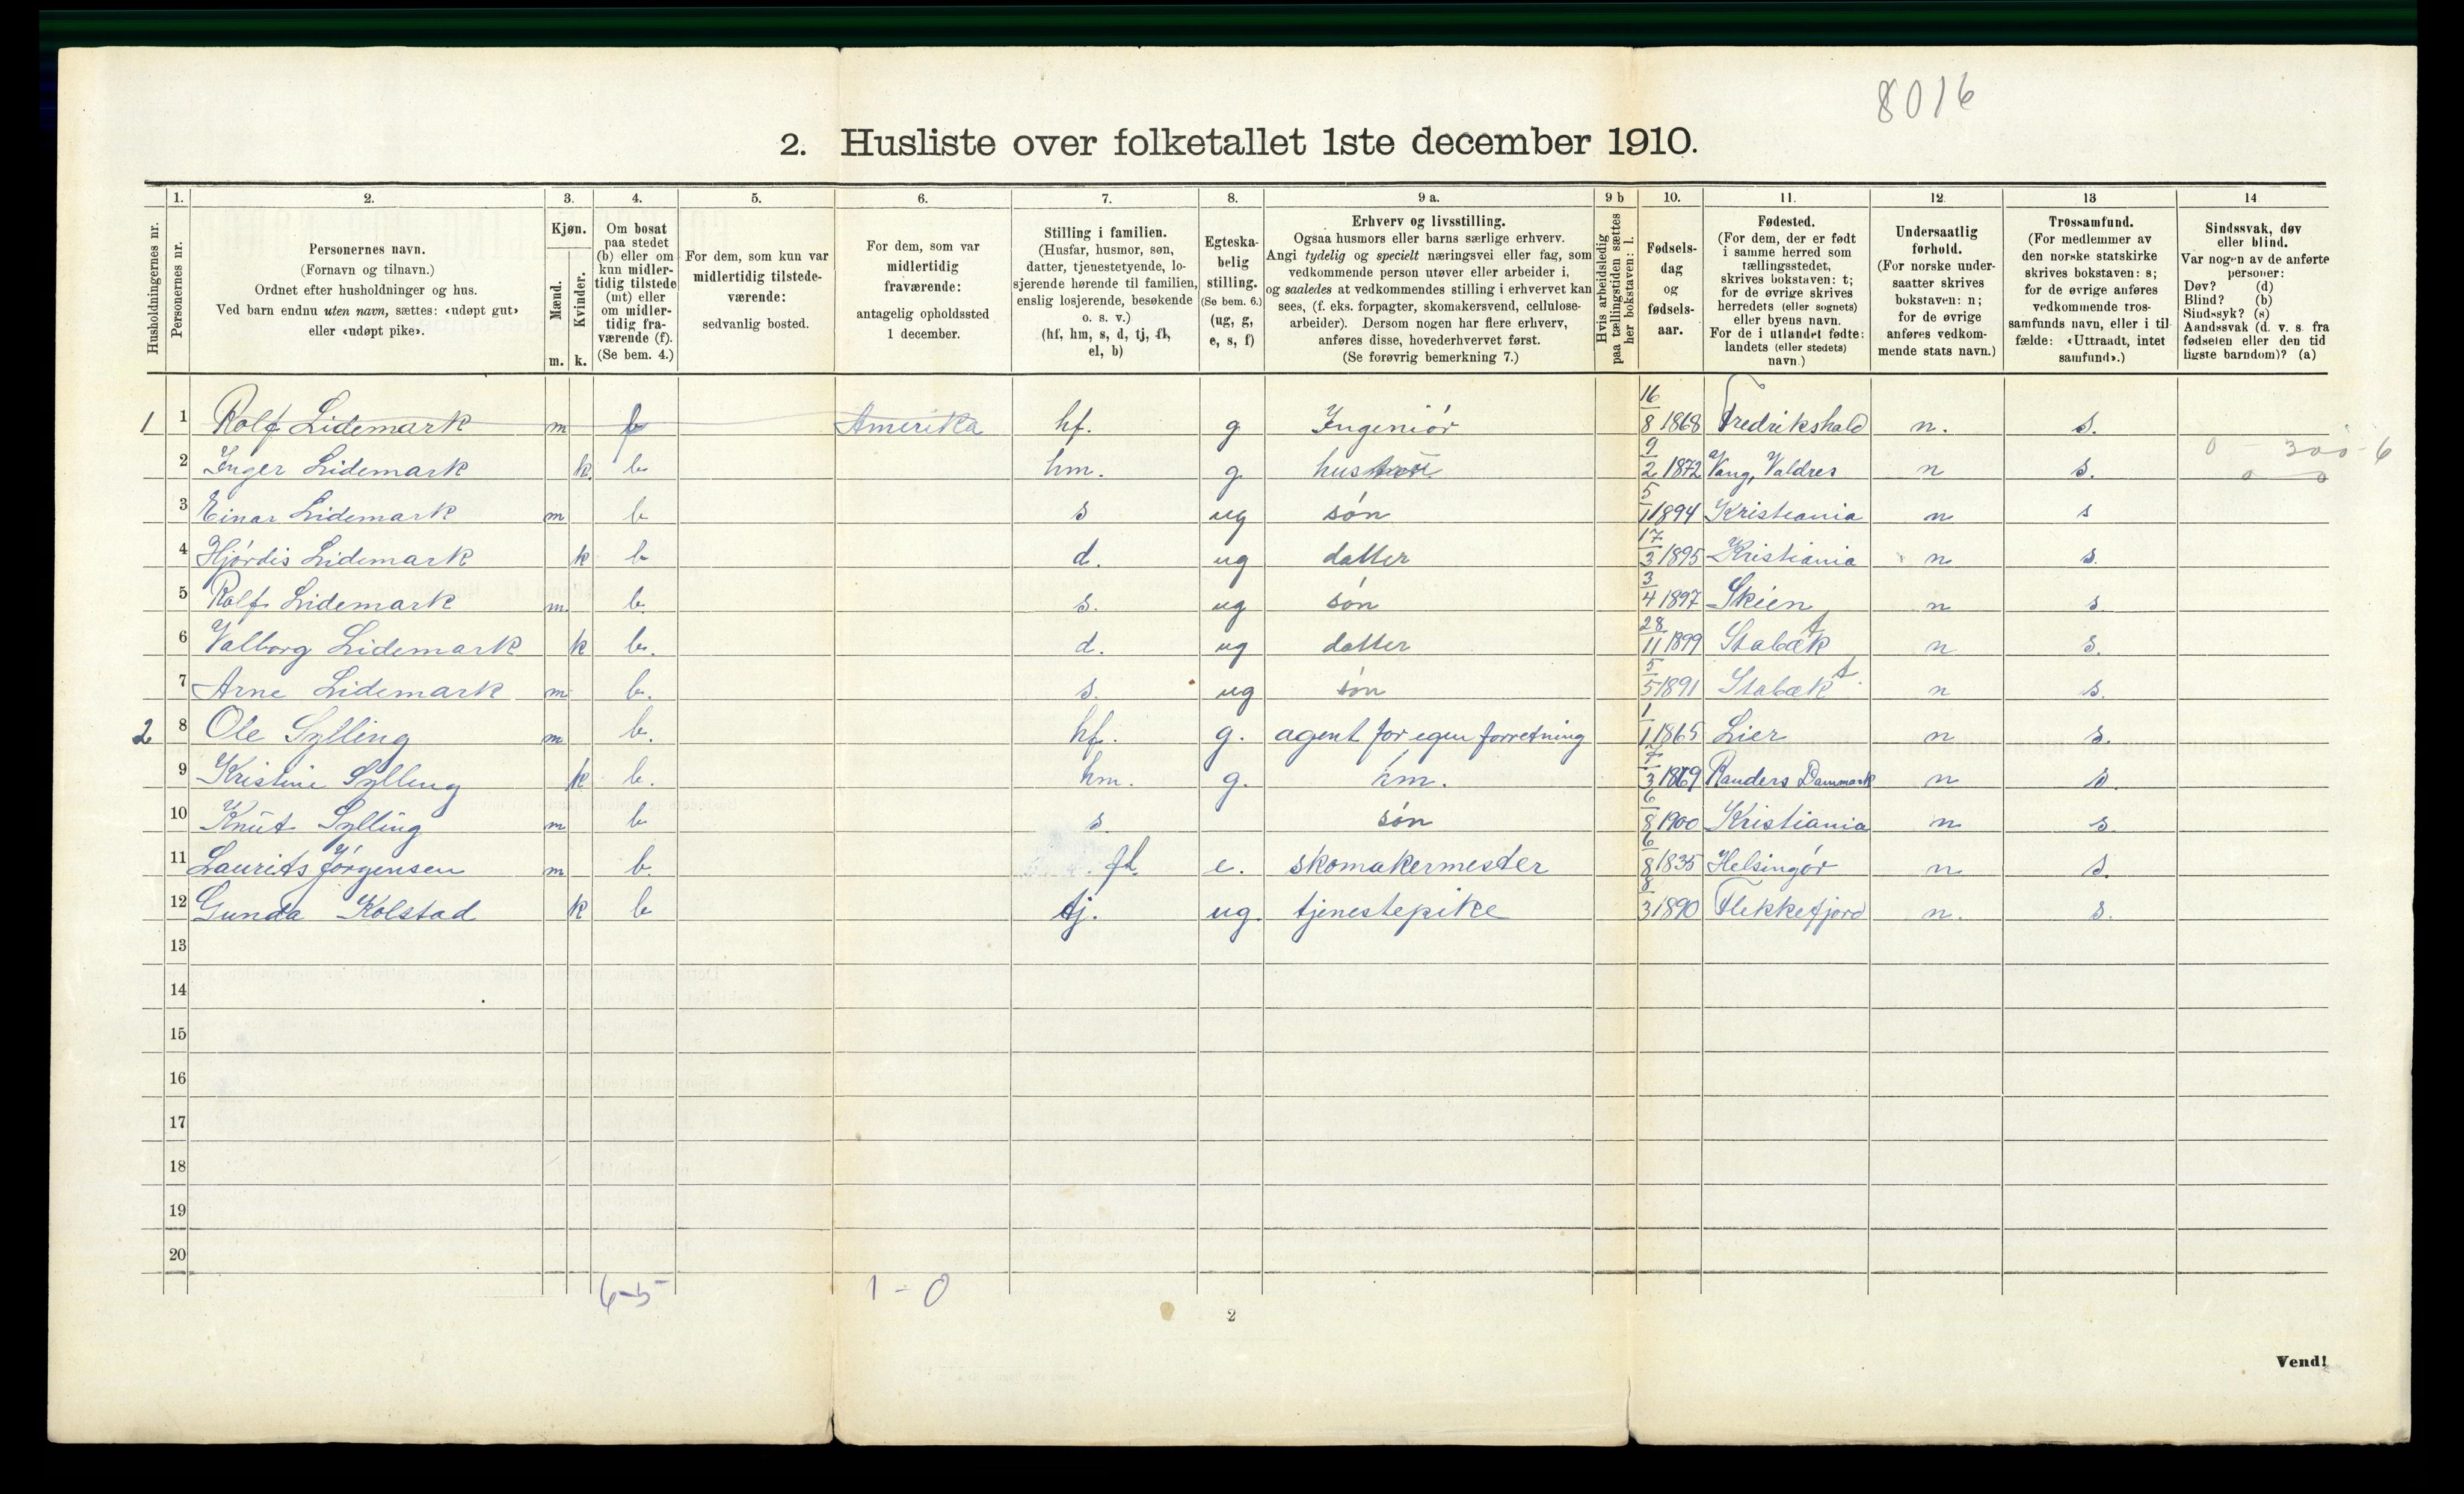 8016
2. Husliste over folketallet 1ste december 1910.
Husholdningernes nr.
1. Personernes nr.
2. Personernes navn. (Fornavn og tilnavn.) Ordnet efter husholdninger og hus. Ved barn endnu uten navn, sættes: «udøpt gut» eller «udøpt pike».
3. Kjøn. Mænd. m. Kvinder. k.
4. Om bosat paa stedet (b) eller om kun midlertidig tilstede (mt) eller om midlertidig fraværende (f). (Se bem. 4.)
5. For dem, som kun var midlertidig tilstedeværende: sedvanlig bosted.
6. For dem, som var midlertidig fraværende: antagelig opholdssted 1 december.
7. Stilling i familien. (Husfar, husmor, søn, datter, tjenestetyende, losjerende hørende til familien, enslig losjerende, besøkende o. s. v.) (hf, hm, s, d, tj, fl, el, b)
8. Egteskabelig stilling. (Se bem. 6.) (ug, g, e, s, f)
9 a. Erhverv og livsstilling. Ogsaa husmors eller barns særlige erhverv. Angi tydelig og specielt næringsvei eller fag, som vedkommende person utøver eller arbeider i, og saaledes at vedkommendes stilling i erhvervet kan sees, (f. eks. forpagter, skomakersvend, cellulosearbeider). Dersom nogen har flere erhverv, anføres disse, hovederhvervet først. (Se forøvrig bemerkning 7.)
9 b Hvis arbeidsledig paa tællingstiden sættes her bokstaven: l.
10. Fødselsdag og fødselsaar.
11. Fødested. (For dem, der er født i samme herred som tællingsstedet, skrives bokstaven: t; for de øvrige skrives herredets (eller sognets) eller byens navn. For de i utlandet fødte: landets (eller stedets) navn.)
12. Undersaatlig forhold. (For norske undersaatter skrives bokstaven: n; for de øvrige anføres vedkommende stats navn.)
13 Trossamfund. (For medlemmer av den norske statskirke skrives bokstaven: s; for de øvrige anføres vedkommende trossamfunds navn, eller i tilfælde: «Uttraadt, intet samfund».)
14 Sindssvak, døv eller blind. Var nogen av de anførte personer: Døv? (d) Blind? (b) Sindssyk? (s) Aandssvak (d. v. s. fra fødselen eller den tidligste barndom)? (a)
1 1 Rolf Lidemark m f Amerika hf. g Ingeniør 16/8 1868 Fredrikshald n. s.
2 Inger Lidemark k. b hm. g hustru 9/2 1872 Vang, Valdres n s. 0 - 300-6
3 Einar Lidemark m b s ug søn 5/1 1894 Kristiania n s
4 Hjørdis Lidemark k b d. ug datter 17/3 1895 Kristiania n s.
5 Rolf Lidemark m b s. ug søn 3/4 1897 Skien n s
6 Valborg Lidemark k b. d. ug datter 28/11 1899 Stabæk t n s.
7 Arne Lidemark m b. s. ug søn 5/5 1891 Stabæk t. n s.
2 8 Ole Sylling m b. hf. g. agent for egen forretning 1/1 1865 Lier n s.
9 Kristine Sylling k b. hm. g. hm. 7/3 1869 Randers Danmark n s.
10 Knut Sylling m b s søn 6/8 1900 Kristiania n s.
11 Laurits Jørgensen m b. fl. e. skomakermester 6/8 1835 Helsingør n s.
12 Gunda Kolstad k b tj. ug. tjenestepike 8/3 1890 Flekkefjord n. s.
13
14
15
16
17
18
19
20
6-5 1 - 0
2
Vend!